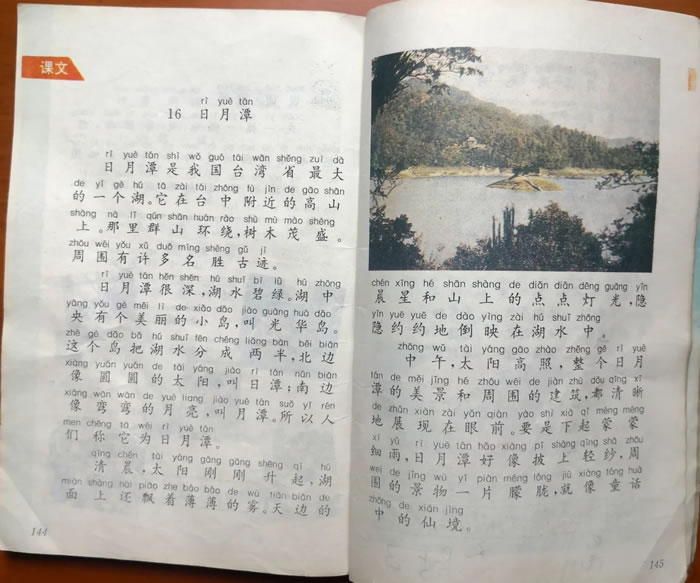 课文
rì yuè tán
16 日月潭
rì yuè tán shì wǒ guó tái wān shěng zuì dà
日月潭是我国台湾省最大
de yí gè hú tā zài tái zhōng fù jìn de gāo shān
的一个湖。它在台中附近的高山
shàng nà lǐ qún shān huán rào shù mù mào shèng
上。那里群山环绕,树木茂盛。
zhōu wéi yǒu xǔ duō míng shèng gǔ jì
周围有许多名胜古迹。
rì yuè tán hěn shēn hú shuǐ bì lǜ hú zhōng
日月潭很深,湖水碧绿。湖中
yāng yǒu gè měi lì de xiǎo dǎo jiào guāng huá dǎo
央有个美丽的小岛,叫光华岛。
zhè gè dǎo bǎ hú shuǐ fēn chéng liǎng bàn běi biān
这个岛把湖水分成两半,北边
xiàng yuán yuán de tài yáng jiào rì tán nán biān
像圆圆的太阳,叫日潭;南边
xiàng wān wān de yuè liang jiào yuè tán suǒ yǐ rén
像弯弯的月亮,叫月潭。所以人
men chēng tā wéi rì yuè tán
们称它为日月潭。
qīng chén tài yáng gāng gāng shēng qǐ hú
清晨,太阳刚刚升起,湖
miàn shàng hái piāo zhe báo báo de wù tiān biān de
面上还飘着薄薄的雾。天边的
144
chén xīng hé shān shàng de diǎn diǎn dēng guāng yǐn
晨星和山上的点点灯光,隐
yǐn yuē yuē de dào yìng zài hú shuǐ zhōng
隐约约地倒映在湖水中。
zhōng wǔ tài yáng gāo zhào zhěng gè rì yuè
中午,太阳高照,整个日月
tán de měi jǐng hé zhōu wéi de jiàn zhù dōu qīng xī
潭的美景和周围的建筑,都清晰
de zhǎn xiàn zài yǎn qián yào shì xià qǐ méng méng
地展现在眼前。要是下起蒙蒙
xì yǔ rì yuè tán hǎo xiàng pī shàng qīng shā zhōu
细雨,日月潭好像披上轻纱,周
wéi de jǐng wù yí piàn méng lóng jiù xiàng tóng huà
围的景物一片朦胧,就像童话
zhōng de xiān jìng
中的仙境。
145